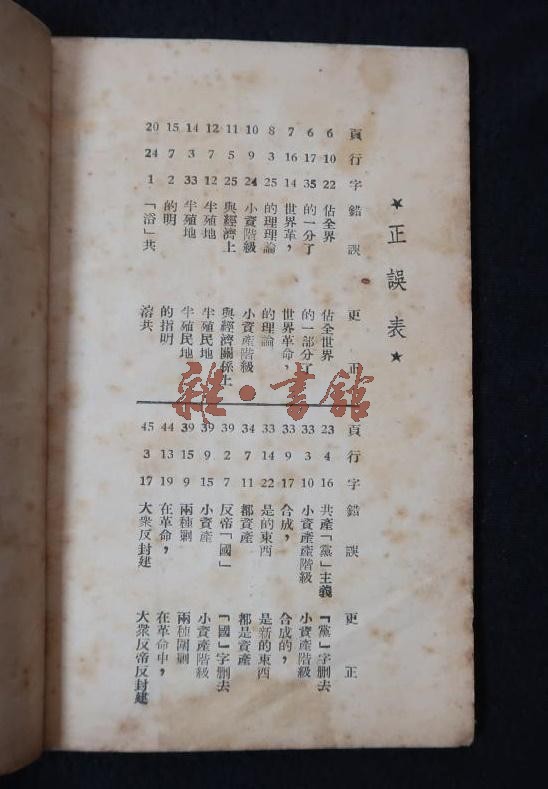 ★正誤表★
頁 行 字 錯誤 更正
6 10 22 佔全界 佔全世界
6 17 35 的一分了 的一部分了
7 16 14 世界革， 世界革命，
8 3 25 的理理論 的理論
10 9 24 小資階級 小資產階級
11 5 25 與經濟上 與經濟關係上
12 7 12 半殖地 半殖民地
14 3 33 半殖地 半殖民地
15 7 2 的明 的指明
20 24 1 「浴」共 溶共
頁 行 字 錯誤 更正
23 4 16 共產「黨」主義 「黨」字删去
33 3 10 小資產產階級 小資產階級
33 9 17 合成， 合成的，
33 14 22 是的東西 是新的東西
34 7 11 都資產 都是資產
39 2 7 反帝「國」 「國」字删去
39 9 15 小資產 小資產階級
39 15 9 兩種剿 兩種圍剿
44 13 19 在革命， 在革命中，
45 3 17 大衆反封建 大衆反帝反封建
雜·書館